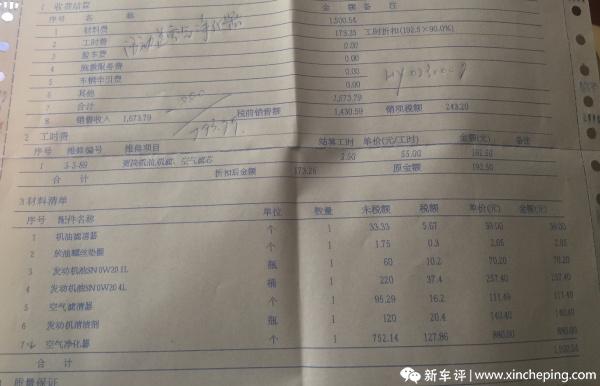 1 收费结算
序号 名 称 金 额 备 注
1 材料费 1,500.54
2 工时费 173.25 工时折扣(192.5×90.0%)
3 0.00
4 施救服务费 0.00
5 车辆牵引费 0.00
6 其他 0.00
7 合计 1,673.79
8 销售收入 1,673.79 税前销售额 1,430.59 销项税额 243.20
2 工时费
序号 维修编号 维修项目 结算工时 单价(元/工时) 金额(元) 备注
3-3-89 更换机油,机滤、空气滤芯 3.50 55.00 192.50
合 计 折扣后金额 173.25 原金额 192.50
3.材料清单
序号 配件名称 单位 数量 未税额 税额 单价(元) 金额(元)
1 机油滤清器 个 1 33.33 5.67 39.00 39.00
2 放油螺丝垫圈 个 1 1.75 0.3 2.05 2.05
3 发动机油SN 0W20 1L 瓶 1 60 10.2 70.20 70.20
4 发动机油SN 0W20 4L 桶 1 220 37.4 257.40 257.40
5 空气滤清器 个 1 95.29 16.2 111.49
6 发动机清洁剂 瓶 1 120 20.4 140.40 140.40
7 空气净化器 个 1 752.14 127.86 880.00 880.00
合 计 1,500.54
质量保证
新车评 | www.xincheping.com